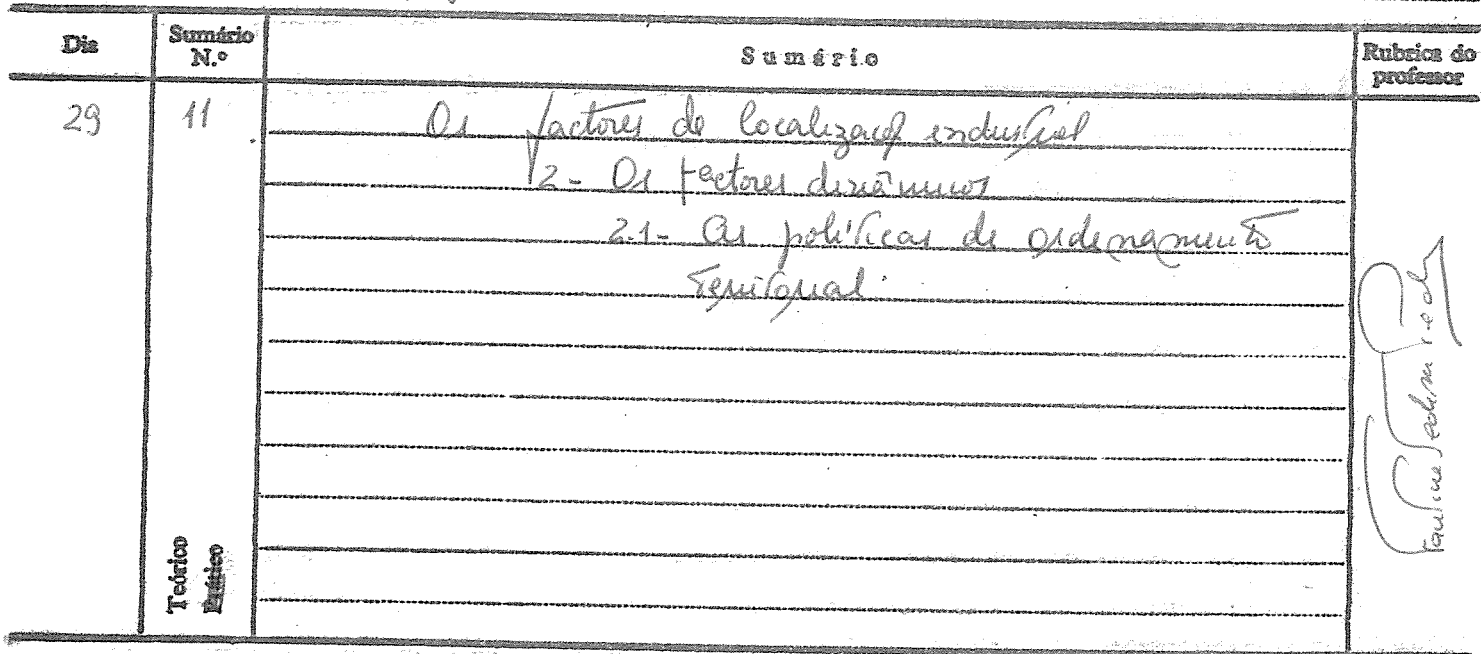 Dia Sumário N.º Sumário Rubrica do professor
29 11 Os factores de localização industrial
2- Os factores dinâmicos
2.1- As políticas de ordenamento
territorial.
Teórico
Prático